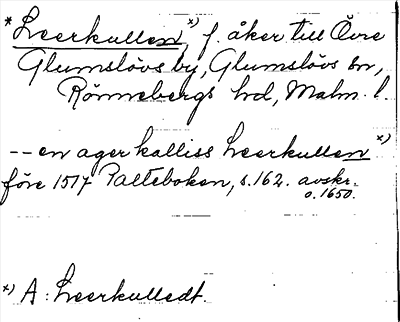 *Leerkullen x) f. åker till Övre
Glumslövs by, Glumslövs sn,
Rönnebergs hd, Malm. l.
-- en ager kalliss Leerkullen x)
före 1517 Palteboken, s. 162. avskr.
o. 1650.
x) A: Leerkulledt.